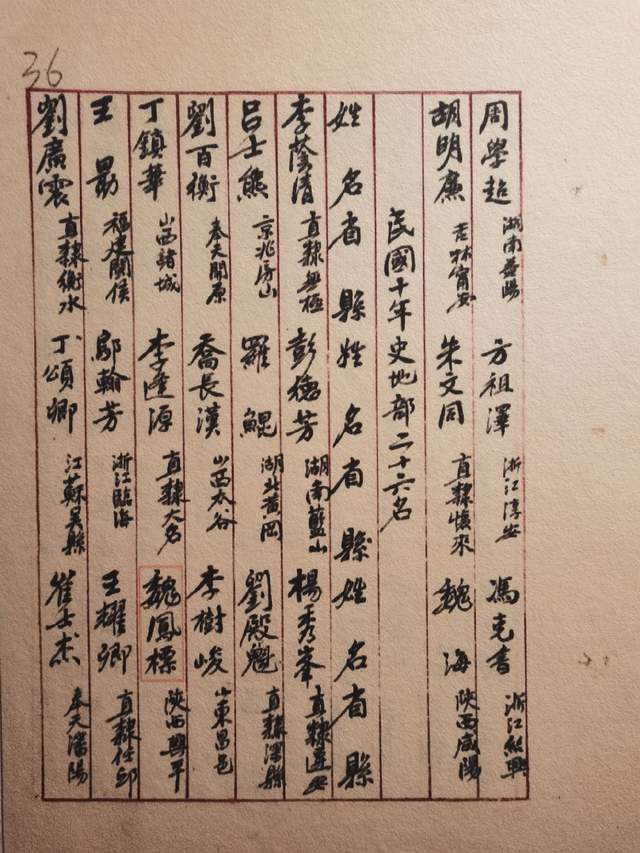 36
周學超 湖南益陽 方祖澤 浙江淳安 馮克書 浙江紹興
胡明廉 吉林甯安 朱文同 直隸懷來 魏海 陝西咸陽
民國十年史地部二十六名
姓名省縣姓名省縣姓名省縣
李蔭清 直隸無極 彭德芳 湖南藍山 楊秀峯 直隸遷安
呂士熊 京兆房山 羅鯤 湖北黃岡 劉殿魁 直隸深縣
劉百衡 奉天開原 喬長漢 山西太谷 李樹峻 山東昌邑
丁鎮華 山西諸城 李逢源 直隸大名 魏鳳標 陝西興平
王勗 福建閩侯 鄔翰芳 浙江臨海 王耀卿 直隸任邱
劉廣震 直隸衡水 丁頌卿 江蘇吳縣 崔士杰 奉天瀋陽